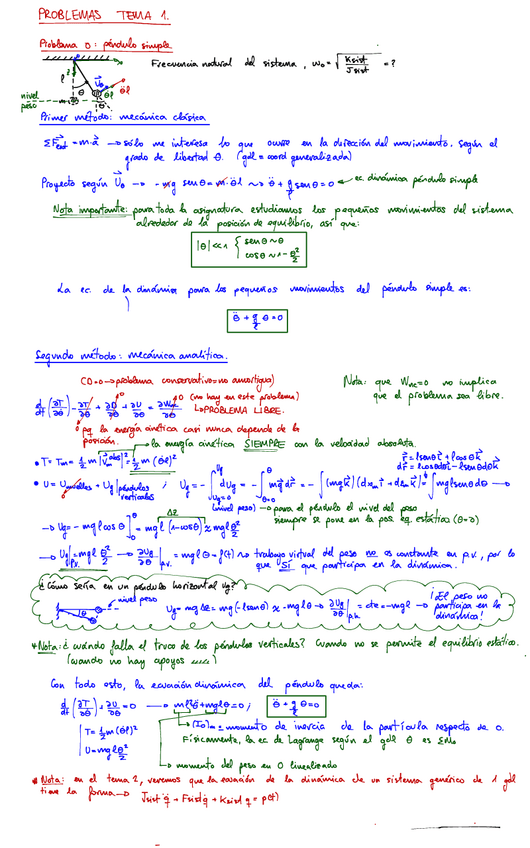 PROBLEMAS TEMA 1.
Problema 0: péndulo simple
Frecuencia natural del sistema, ω₀ = √(Ksist / Jsist) = ?
nivel peso
Primer método: mecánica clásica
ΣF⃗ext = m·a⃗ → sólo me interesa lo que ocurre en la dirección del movimiento. según el
grado de libertad θ. (gdl = coord generalizada)
Proyecto según U⃗θ → -mg senθ = m·θ̈l ⇝ θ̈ + g/l senθ = 0 ← ec. dinámica péndulo simple
Nota importante: para toda la asignatura estudiamos los pequeños movimientos del sistema
alrededor de la posición de equilibrio, así que:
|θ| << 1 { senθ ~ θ
cosθ ~ 1 - θ²/2
La ec. de la dinámica para los pequeños movimientos del péndulo simple es:
θ̈ + g/l θ = 0
Segundo método: mecánica analítica.
CD=0 → problema conservativo = no amortiguado
Nota: que Wnc=0 no implica
que el problema sea libre.
d/dt (∂T/∂θ̇) - ∂T/∂θ + ∂D/∂θ̇ + ∂U/∂θ = ∂Wnc/∂θ
0 (no hay en este problema)
↳ PROBLEMA LIBRE.
0 pq la energía cinética casi nunca depende de la
posición.
la energía cinética SIEMPRE con la velocidad absoluta.
• T = Tm = 1/2 m |V⃗m abs|² = 1/2 m (θ̇l)²
r⃗ = l senθ i⃗ + l cosθ k⃗
dr⃗ = l cosθdθ i⃗ - l senθdθ k⃗
• U = Umuelles + Ug | péndulos verticales ;
(nivel peso) → para el péndulo el nivel del peso
siempre se pone en la pos. eq. estática (θ=0)
→ Ug = -mgl cosθ ]₀^θ = mgl (1-cosθ) ≈ mgl θ²/2
→ Ug|p.v. = mgl θ²/2 → ∂Ug/∂θ |p.v. = mglθ = f(t) ⇝ trabajo virtual del peso no es constante en p.v., por lo
que SÍ que participa en la dinámica.
¿Cómo sería en un péndulo horizontal Ug?
nivel peso
Ug = mgΔz = mg(-l senθ) ≈ -mglθ → ∂Ug/∂θ |p.h. = cte = -mgl →
¡El peso no
participa en la
dinámica!
* Nota: ¿cuándo falla el truco de los péndulos verticales? Cuando no se permite el equilibrio estático.
(cuando no hay apoyos)
Con todo esto, la ecuación dinámica del péndulo queda:
d/dt (∂T/∂θ̇) + ∂U/∂θ = 0 → ml²θ̈ + mglθ = 0 ; θ̈ + g/l θ = 0
T = 1/2 m (θ̇l)²
U = mgl θ²/2
[I₀]m = momento de inercia de la partícula respecto de O.
Físicamente, la ec de Lagrange según el gdl θ es ΣM₀
↳ momento del peso en O linealizado
* Nota: en el tema 2, veremos que la ecuación de la dinámica de un sistema genérico de 1 gdl
tiene la forma → Jsist q̈ + Fsist q̇ + Ksist q = p(t)